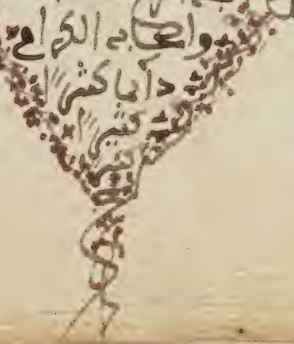 واصحابه الكرام
دائما كثيرا
كثيرا
كثيرا